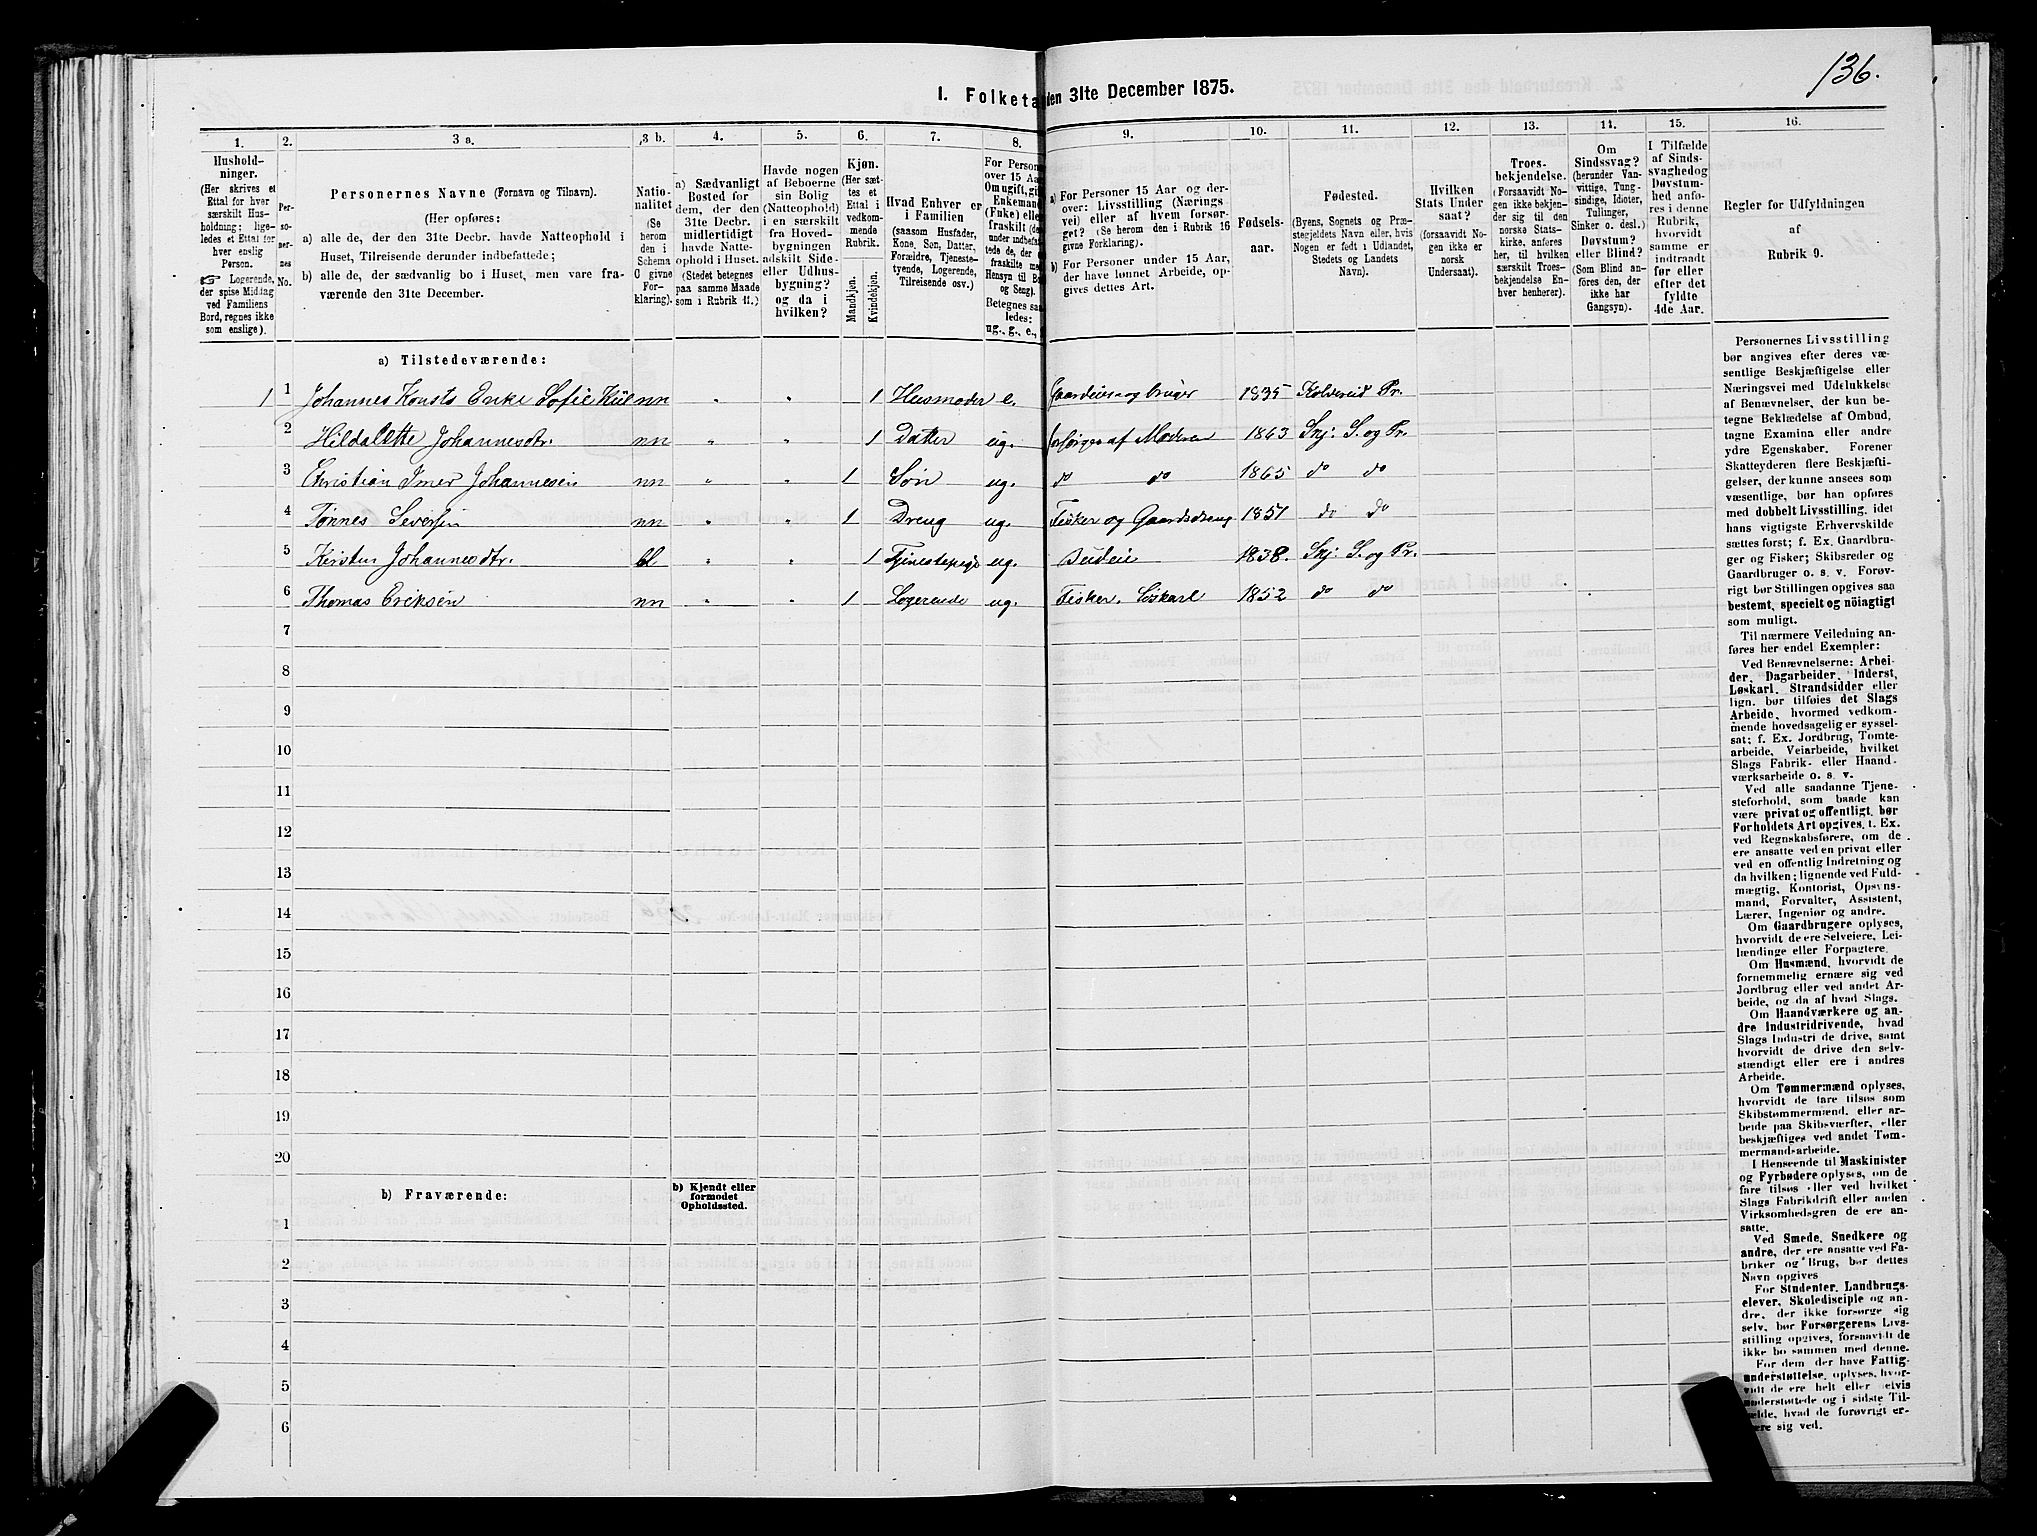 136.
I. Folketa den 31te December 1875.
1. 2. 3 a. 3 b. 4. 5. 6. 7. 8. 9. 10. 11. 12. 13. 14. 15. 16.
Hushold-
ninger.
(Her skrives et
Ettal for hver
særskilt Hus-
holdning; lige-
ledes et Ettal for
hver enslig
Person.
Logerende,
der spise Middag
ved Familiens
Bord, regnes ikke
som enslige).
Per-
so-
ner-
nes
No.
Personernes Navne (Fornavn og Tilnavn).
(Her opføres:
a) alle de, der den 31te Decbr. havde Natteophold i
Huset, Tilreisende derunder indbefattede;
b) alle de, der sædvanlig bo i Huset, men vare fra-
værende den 31te December.
Natio-
nalitet
(Se
herom
den i
Schema
O givne
For-
klaring).
a) Sædvanligt
Bosted for
dem, der den
31te Decbr.
midlertidigt
havde Natte-
ophold i Huset.
(Stedet betegnes
paa samme Maade
som i Rubrik 11.)
Havde nogen
af Beboerne
sin Bolig
(Natteophold)
i en særskilt
fra Hoved-
bygningen
adskilt Side-
eller Udhus-
bygning?
og da i
hvilken?
Kjøn.
(Her sæt-
tes et
Ettal i
vedkom-
mende
Rubrik.
Mandkjøn.
Kvindekjøn.
Hvad Enhver er
i Familien
(saasom Husfader,
Kone, Søn, Datter,
Forældre, Tjeneste-
tyende, Logerende,
Tilreisende osv.)
For Person
over 15 Aa
Om ugift, gif
Enkeman
(Enke) elle
fraskilt (de
under indbefat
tede de, der
fraskilte me
Hensyn til Bo
og Seng).
Betegnes saa
ledes:
ug., g., e.,
a) For Personer 15 Aar og der-
over: Livsstilling (Nærings
vei) eller af hvem forsør-
get? (Se herom den i Rubrik 16
givne Forklaring).
b) For Personer under 15 Aar,
der have lønnet Arbeide, op-
gives dettes Art.
Fødsels-
aar.
Fødested.
(Byens, Sognets og Præ-
stegjeldets Navn eller, hvis
Nogen er født i Udlandet,
Stedets og Landets
Navn).
Hvilken
Stats Under
saat?
(forsaavidt No-
gen ikke er
norsk
Undersaat).
Troes-
bekjendelse.
(Forsaavidt No-
gen ikke bekjen-
der sig til den
norske Stats-
kirke, anføres
her, til hvilken
særskilt Troes-
bekjendelse En-
hver henhører).
Om
Sindssvag?
(herunder Van-
vittige, Tung-
sindige, Idioter,
Tullinger,
Sinker o. desl.)
Døvstum?
eller Blind?
(Som Blind an-
føres den, der
ikke har
Gangsyn).
I Tilfælde
af Sinds-
svaghed og
Døvstum-
hed anfø-
res i denne
Rubrik,
hvorvidt
samme er
indtraadt
før eller
efter det
fyldte
4de Aar.
Regler for Udfyldningen
af
Rubrik 9.
a) Tilstedeværende:
1 1 Johannes Konsts Enke Sofie nn " " 1 Husmoder e. Gaardeier og bruger 1835 Kolvereid Pr.
2 Hildalette Johannesdtr. nn " " 1 Datter ug. forsørges af Moderen 1863 Skj. S. og Pr.
3 Christian Imer Johannesen nn " " 1 Søn ug. do do 1865 do do
4 Tønnes Seversen nn " " 1 Dreng ug. Fisker og Gaardsdreng 1851 do do
5 Kirsten Johannesdtr. bl " " 1 Tjenestepige ug. Budeie 1838. Skj. S. og Pr.
6 Thomas Eriksen nn " " 1 Logerende ug. Fisker. Løskarl 1852 do do
7
8
9
10
11
12
13
14
15
16
17
18
19
20
b) Fraværende:
b) Kjendt eller
formodet
Opholdssted.
1
2
3
4
5
6
Personernes Livsstilling
bør angives efter deres væ-
sentlige Beskjæftigelse eller
Næringsvei med Udelukkelse
af Benævnelser, der kun be-
tegne Beklædelse af Ombud,
tagne Examina eller andre
ydre Egenskaber. Forener
Skatteyderen flere Beskjæfti-
gelser, der kunne ansees som
væsentlige, bør han opføres
med dobbelt Livsstilling, idet
hans vigtigste Erhvervskilde
sættes først; f. Ex. Gaardbru-
ger og Fisker; Skibsreder og
Gaardbruger o. s. v. Forøv-
rigt bør Stillingen opgives saa
bestemt, specielt og nöiagtigt
som muligt.
Til nærmere Veiledning an-
føres her endel Exempler:
Ved Benævnelserne: Arbei-
der, Dagarbeider, Inderst,
Løskarl, Strandsidder eller
lign. bør tilføies det Slags
Arbeide, hvormed vedkom-
mende hovedsagelig er syssel-
sat; f. Ex. Jordbrug, Tomte-
arbeide, Veiarbeide, hvilket
Slags Fabrik- eller Haand-
værksarbeide o. s. v.
Ved alle saadanne Tjene-
steforhold, som baade kan
være privat og offentligt, bør
Forholdets Art opgives, t. Ex.
ved Regnskabsførere, om de
ere ansatte ved en privat eller
ved en offentlig Indretning og
da hvilken; lignende ved Fuld-
mægtig, Kontorist, Opsyns-
mand, Forvalter, Assistent,
Lærer, Ingeniør og andre.
Om Gaardbrugere oplyses,
hvorvidt de ere Selveiere, Lei-
lændinge eller Forpagtere.
Om Husmænd, hvorvidt de
fornemmelig ernære sig ved
Jordbrug eller ved andet Ar-
beide, og da af hvad Slags.
Om Haandværkere og an-
dre Industridrivende, hvad
Slags Industri de drive, samt
hvorvidt de drive den selv-
stændigt eller ere i andres
Arbeide.
Om Tømmermænd oplyses,
hvorvidt de fare tilsøs som
Skibstømmermænd, eller ar-
beide paa Skibsværfter, eller
beskjæftiges ved andet Tøm-
mermandsarbeide.
I Henseende til Maskinister
og Fyrbødere oplyses, om de
fare tilsøs eller ved hvilket
Slags Fabrikdrift eller anden
Virksomhedsgren de ere an-
satte.
Ved Smede, Snedkere og
andre, der ere ansatte ved Fa-
briker og Brug, bør dettes
Navn opgives
For Studenter, Landbrugs-
elever, Skoledisciple og an-
dre, der ikke forsørge sig
selv, bør Forsørgerens Livs-
stilling opgives, forsaavidt de
ikke bo sammen med denne.
For dem, der have Fattig-
understøttelse, oplyses, hvor-
vidt de ere helt eller delvis
understøttede og i sidste Til-
ælde, hvad de forøvrigt er-
ære sig ved.